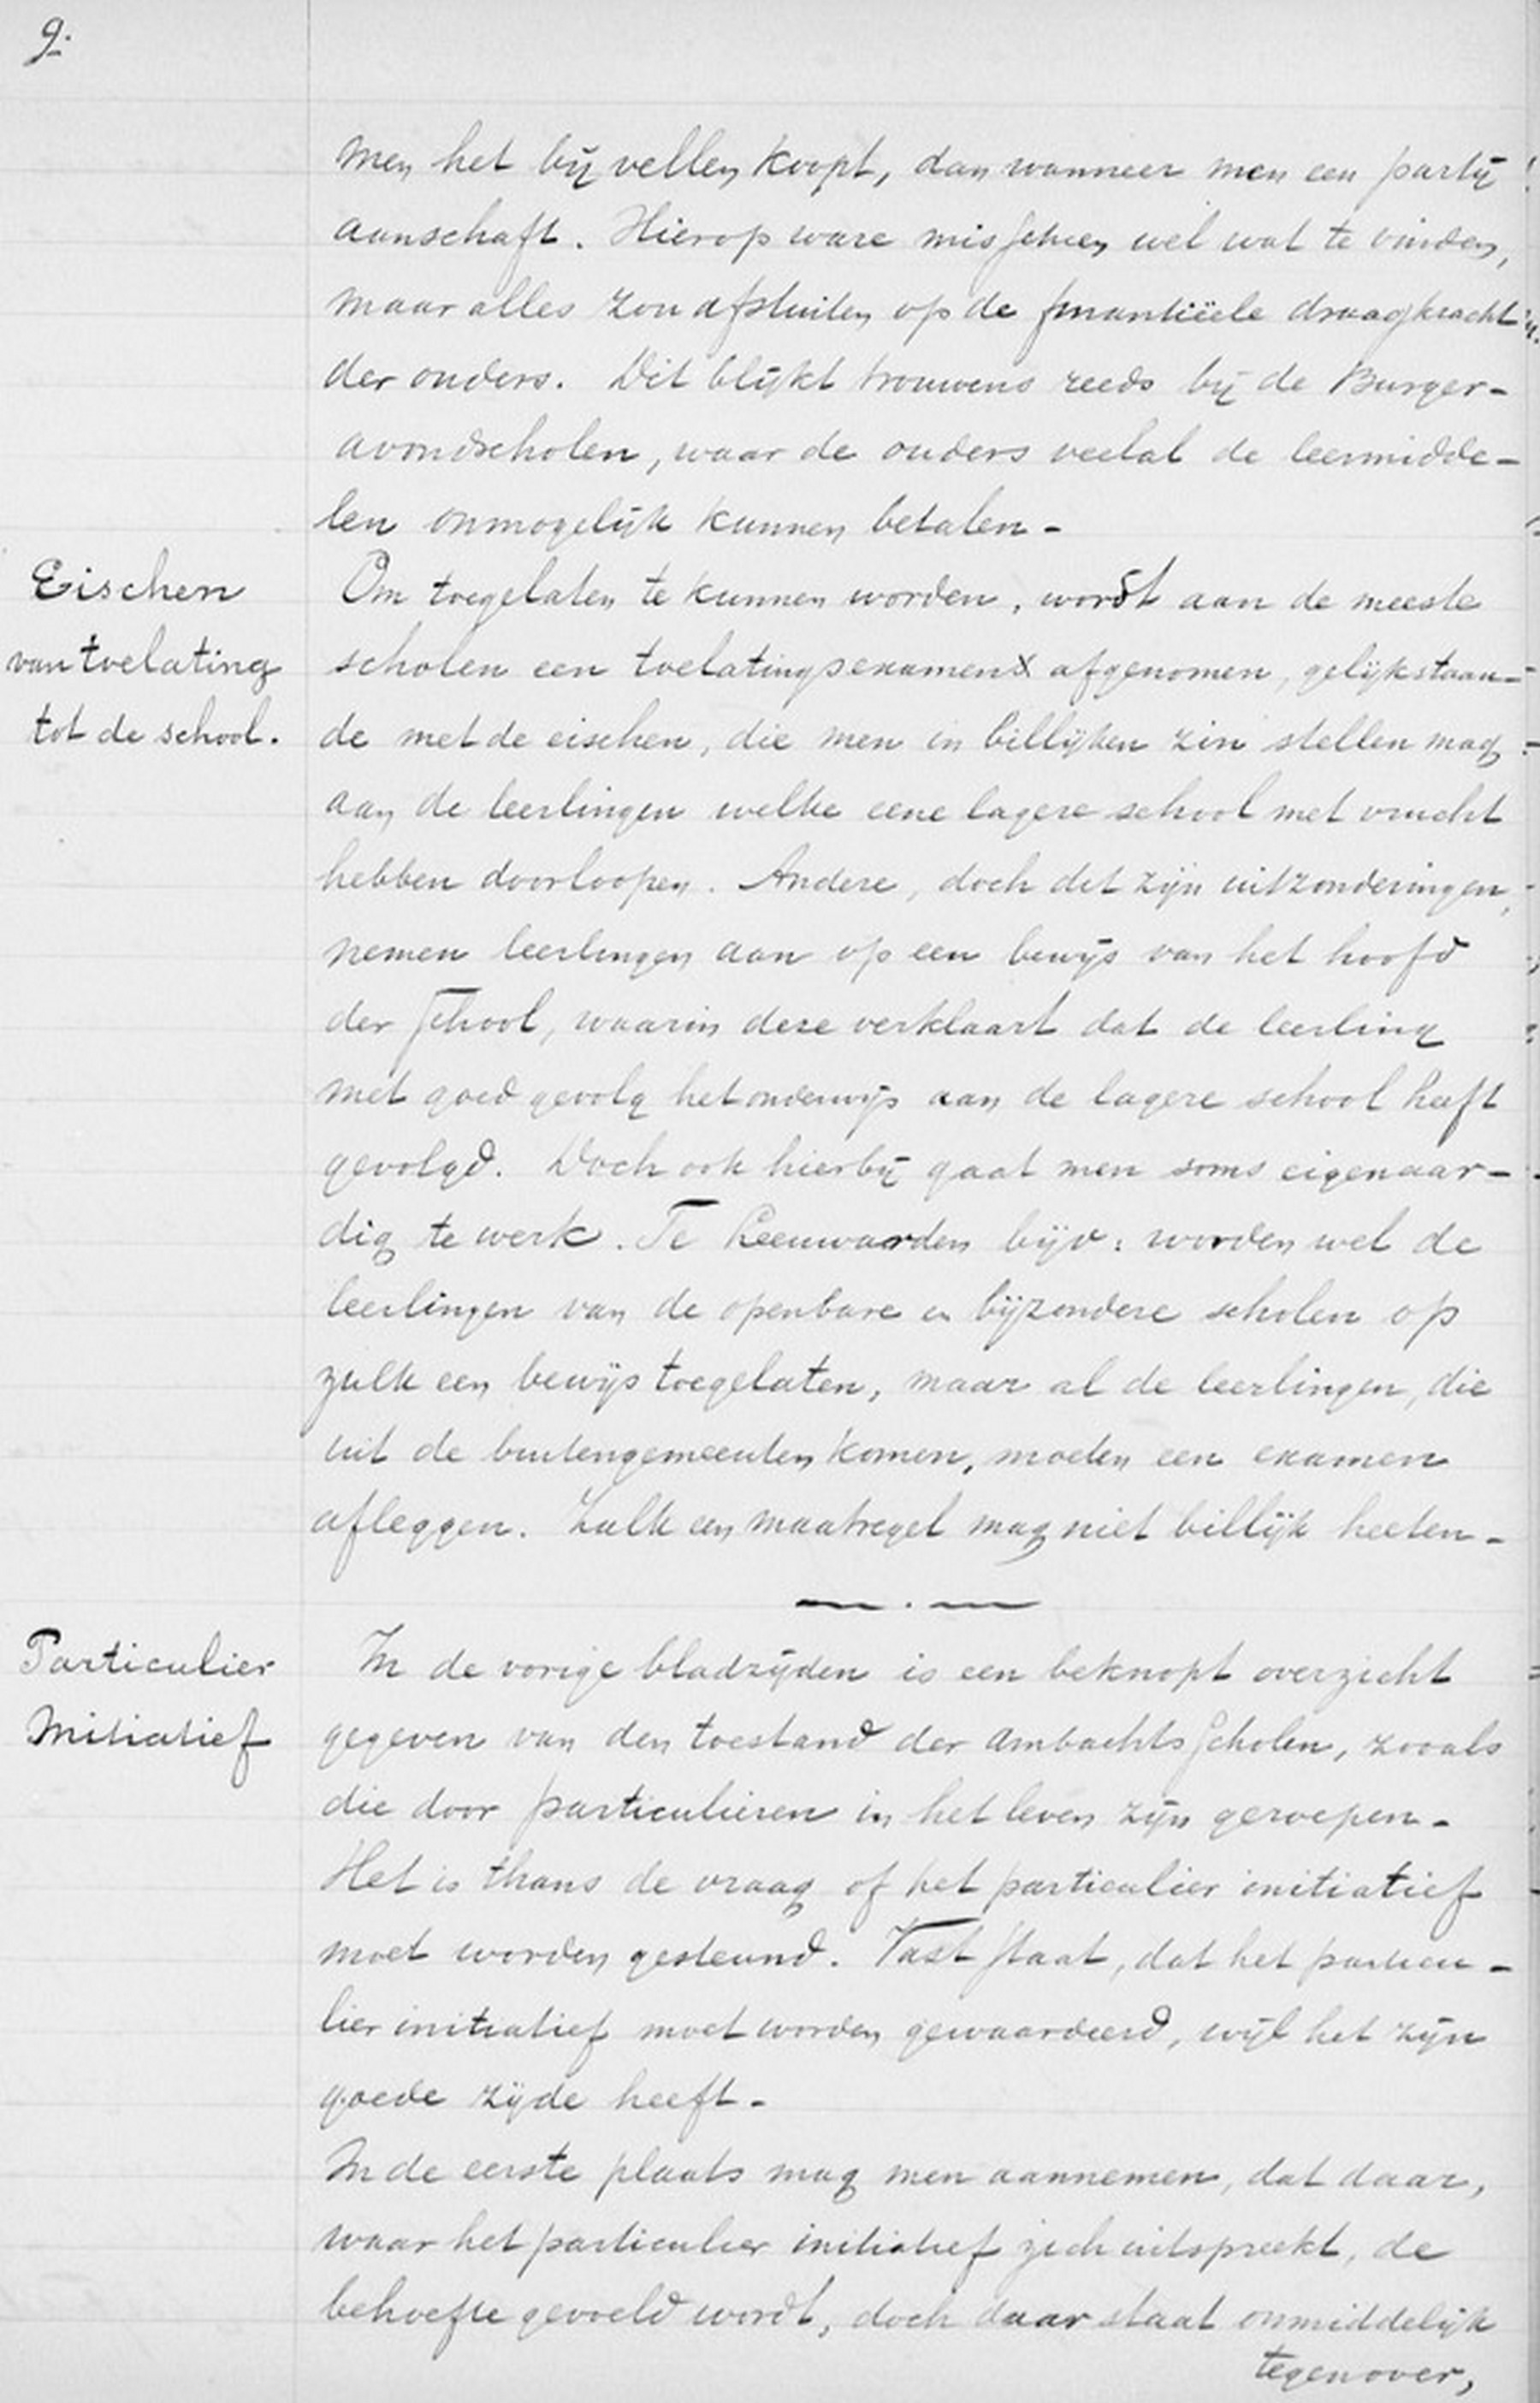 9.
men het bij vellen koopt, dan wanneer men een partij
aanschaft. Hierop ware misschien wel wat te vinden,
maar alles zou afstuiten op de finantiëele draagkracht
der ouders. Dit blijkt trouwens reeds bij de Burger-
avondscholen, waar de ouders veelal de leermidde-
len onmogelijk kunnen betalen-
Eischen
van toelating
tot de school.
Om toegelaten te kunnen worden, wordt aan de meeste
scholen een toelatingsexamen afgenomen, gelijkstaan-
de met de eischen, die men in billijken zin stellen mag
aan de leerlingen welke eene lagere school met vrucht
hebben doorloopen. Andere, doch dit zijn uitzonderingen,
nemen leerlingen aan op een bewijs van het hoofd
der School, waarin deze verklaart dat de leerling
met goed gevolg het onderwijs aan de lagere school heeft
gevolgd. Doch ook hierbij gaat men soms eigenaar-
dig te werk. Te Leeuwarden bijv: worden wel de
leerlingen van de openbare en bijzondere scholen op
zulk een bewijs toegelaten, maar al de leerlingen, die
uit de buitengemeenten komen, moeten een examen
afleggen. Zulk een maatregel mag niet billijk heeten-
Particulier
Initiatief
In de vorige bladzijden is een beknopt overzicht
gegeven van den toestand der ambachtsscholen, zooals
die door particulieren in het leven zijn geroepen-
Het is thans de vraag of het particulier initiatief
moet worden gesteund. Vast staat, dat het particu-
lier initiatief moet worden gewaardeerd, wijl het zijn
goede zijde heeft-
In de eerste plaats mag men aannemen, dat daar,
waar het particulier initiatief zich uitspreekt, de
behoefte gevoeld wordt, doch daar staat onmiddelijk
tegenover,